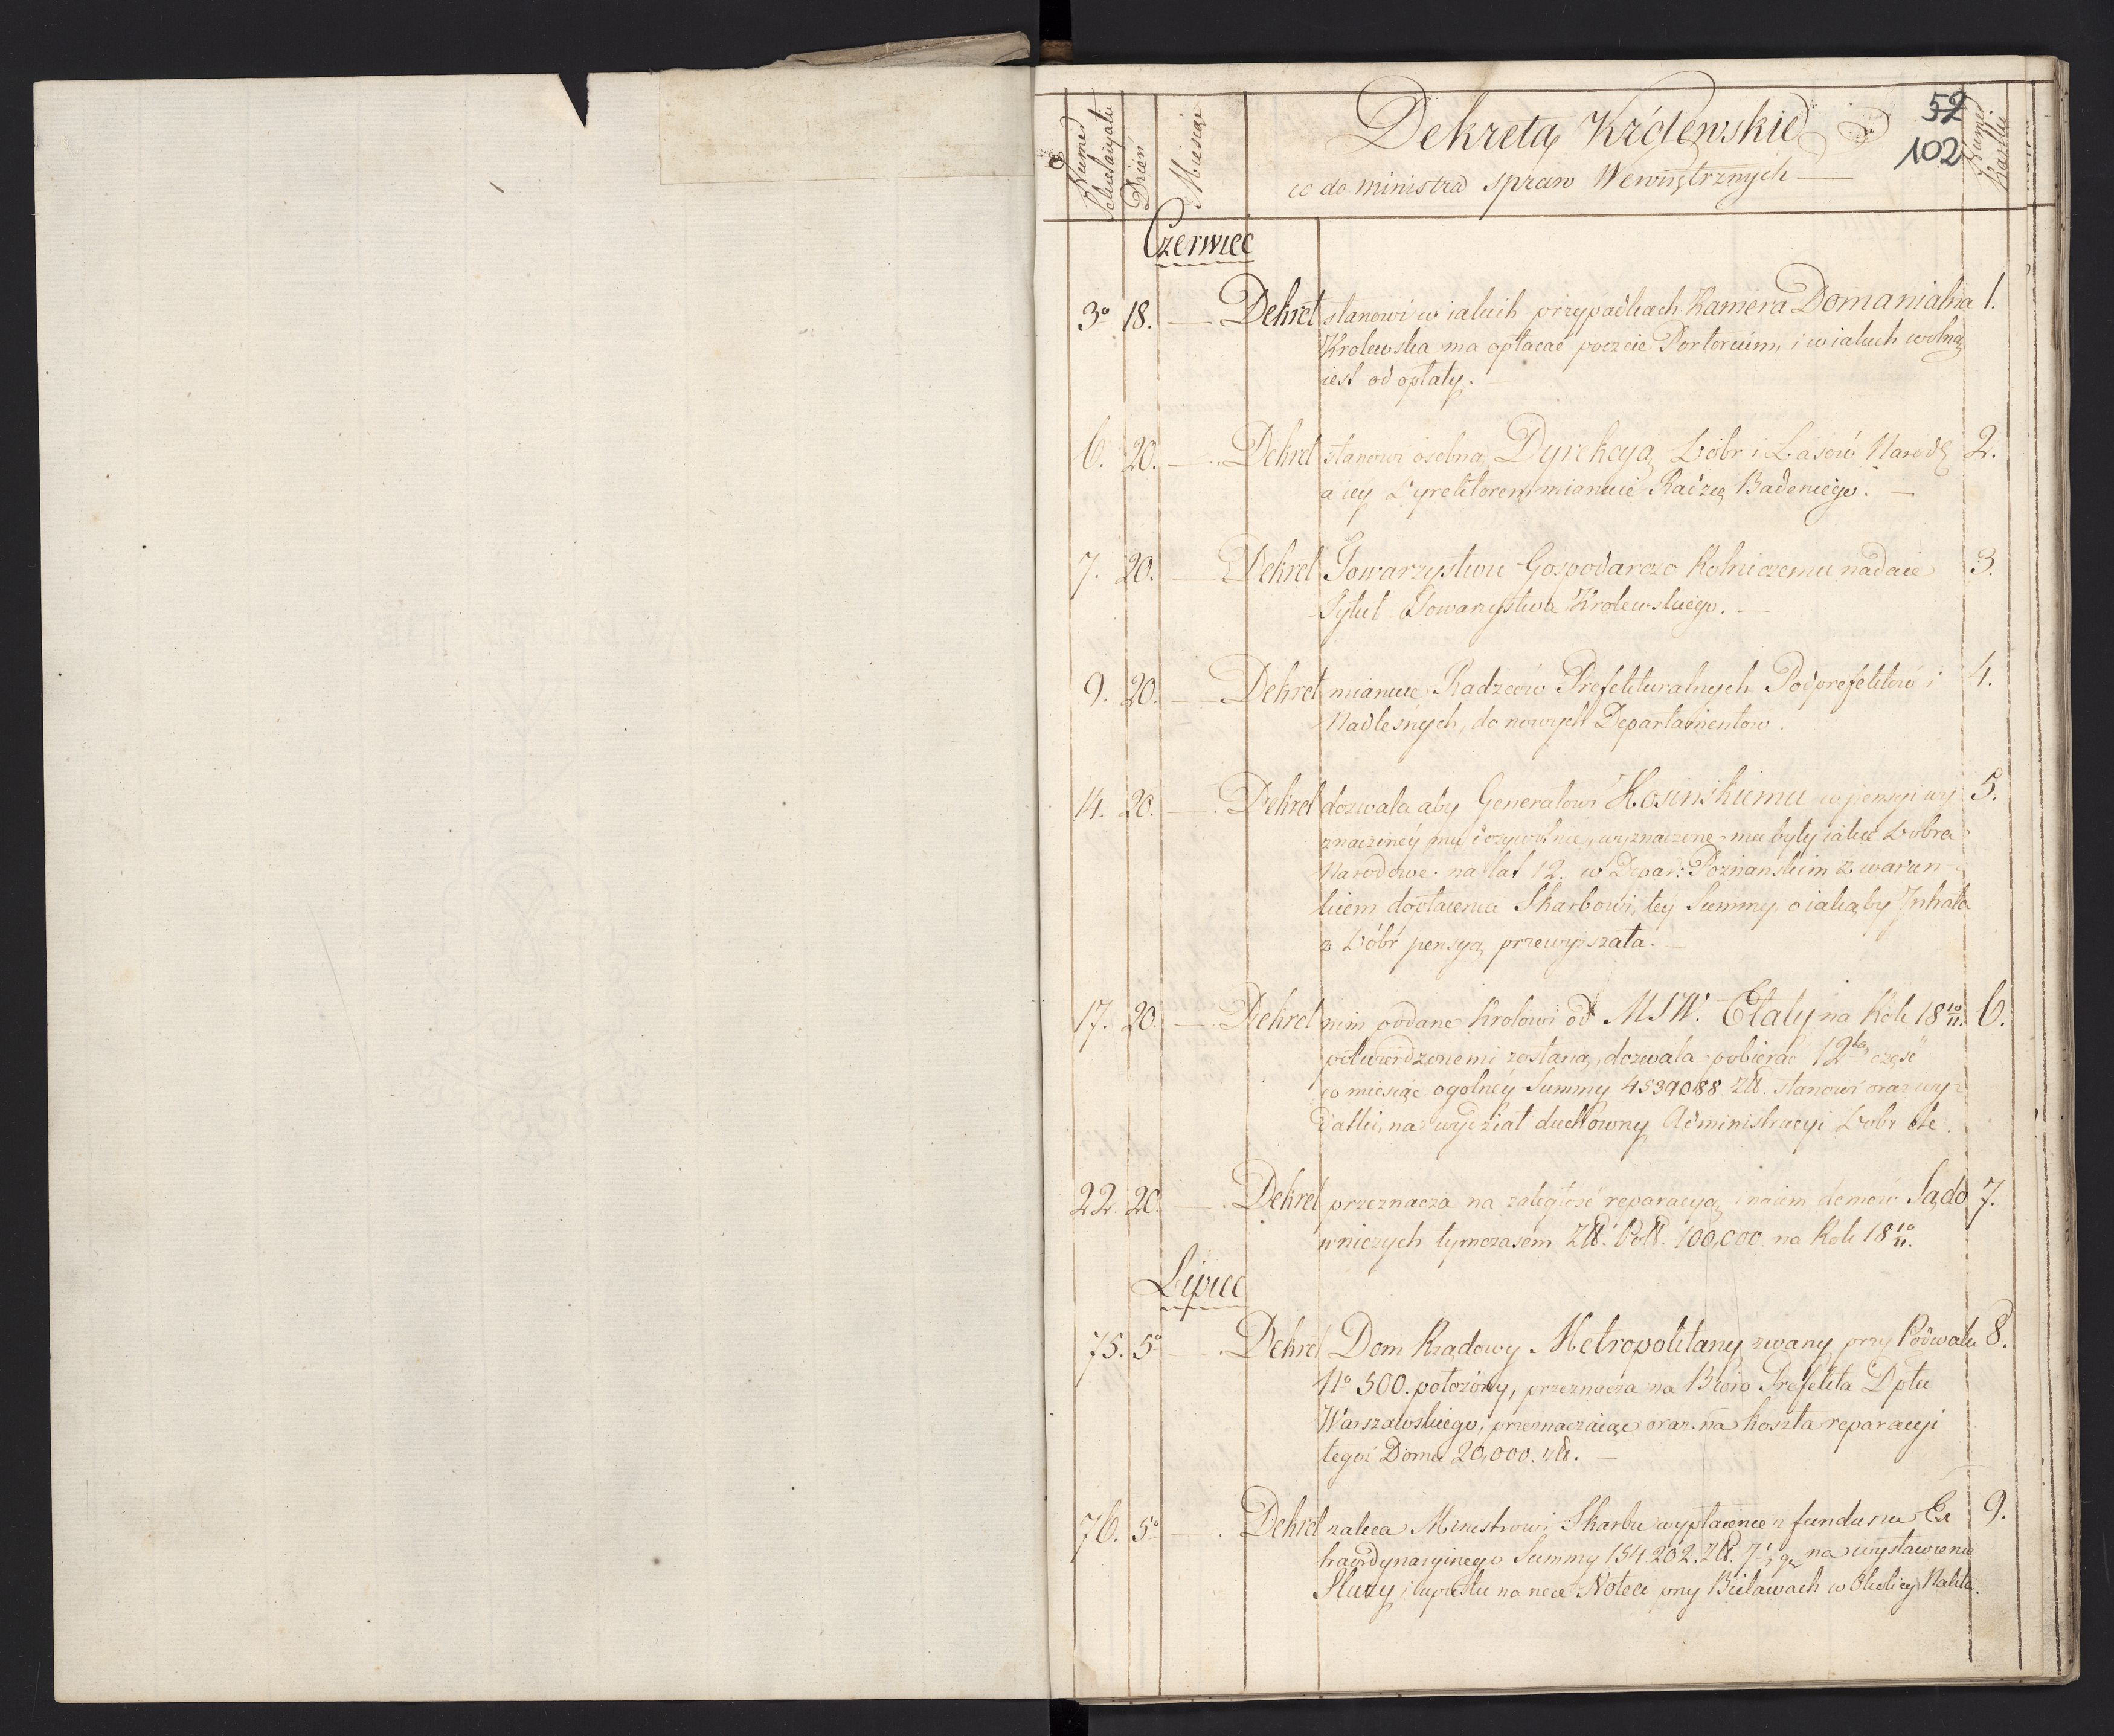 52
102
Numer Sekretaryatu
Dzień
Miesiąc
Dekreta Królewskie
co do ministra spraw Wewnętrznych
Numer Kartki
Czerwiec
3° 18. — Dekret stanowi w iakich przypadkach Kamera Domanialna 1.
Krolewska ma opłacać poczcie Portorium, i w iakich wolną
iest od opłaty. —
6. 20. — Dekret stanowi osobną Dyrekcyą Dóbr i Lasów Narod: 2.
a iey Dyrektorem mianuie Radzcę Badeniego. —
7. 20. — Dekret Towarzystwu Gospodarczo Rolniczemu nadaie 3.
Tytuł Towarzystwa Krolewskiego. —
9. 20. — Dekret mianuie Radzców Prefekturalnych Podprefektów i 4.
Nadleśnych, do nowych Departamentow.
14. 20. — Dekret dozwala aby Generałowi Kosinskiemu w pensyi wy 5.
znaczoney mu dożywotnie, wyznaczone mu były iakie Dobra
Narodowe na lat 12. w Depar: Poznanskim z warun
kiem dopłacenia Skarbowi, tey Summy, o iakąby Intrata
z Dóbr pensyą przewyższała. —
17. 20. — Dekret nim podane Krolowi od MSW. Etaty na Rok 18 10/11. 6.
potwierdzonemi zostaną, dozwala pobierać 12tą część
co miesiąc ogolney Summy 4539088 złł. stanowi oraz wy
datki, na wydział duchowny Administracyi Dobr etc.
22. 20. — Dekret przeznacza na zaległość reparacyą i naiem domow Sądo 7.
wniczych tymczasem Złł. Poll. 100,000 na Rok 18 10/11.
Lipiec
75. 5° — Dekret Dom Rządowy Metropolitany zwany, przy Podwalu 8.
No 500. położony, przeznacza na Biuro Prefekta Dptu
Warszawskiego, przeznaczaiąc oraz na koszta reparacyi
tegoż Domu 20,000. złł. —
76. 5° — Dekret zaleca Ministrowi Skarbu wypłacenie z funduszu Ex 9.
traordynaryinego Summy 154.202. Złł. 7 1/2 gr na wystawienie
Sluzy i upustu na rzece Noteci przy Bielawach w Okolicy Nakła.